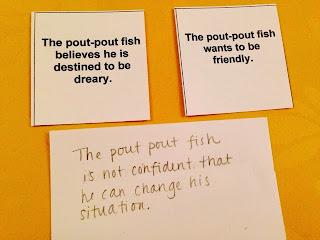 The pout-pout fish
believes he is
destined to be
dreary.
The pout-pout fish
wants to be
friendly.
The pout pout fish
is not confident that
he can change his
situation.